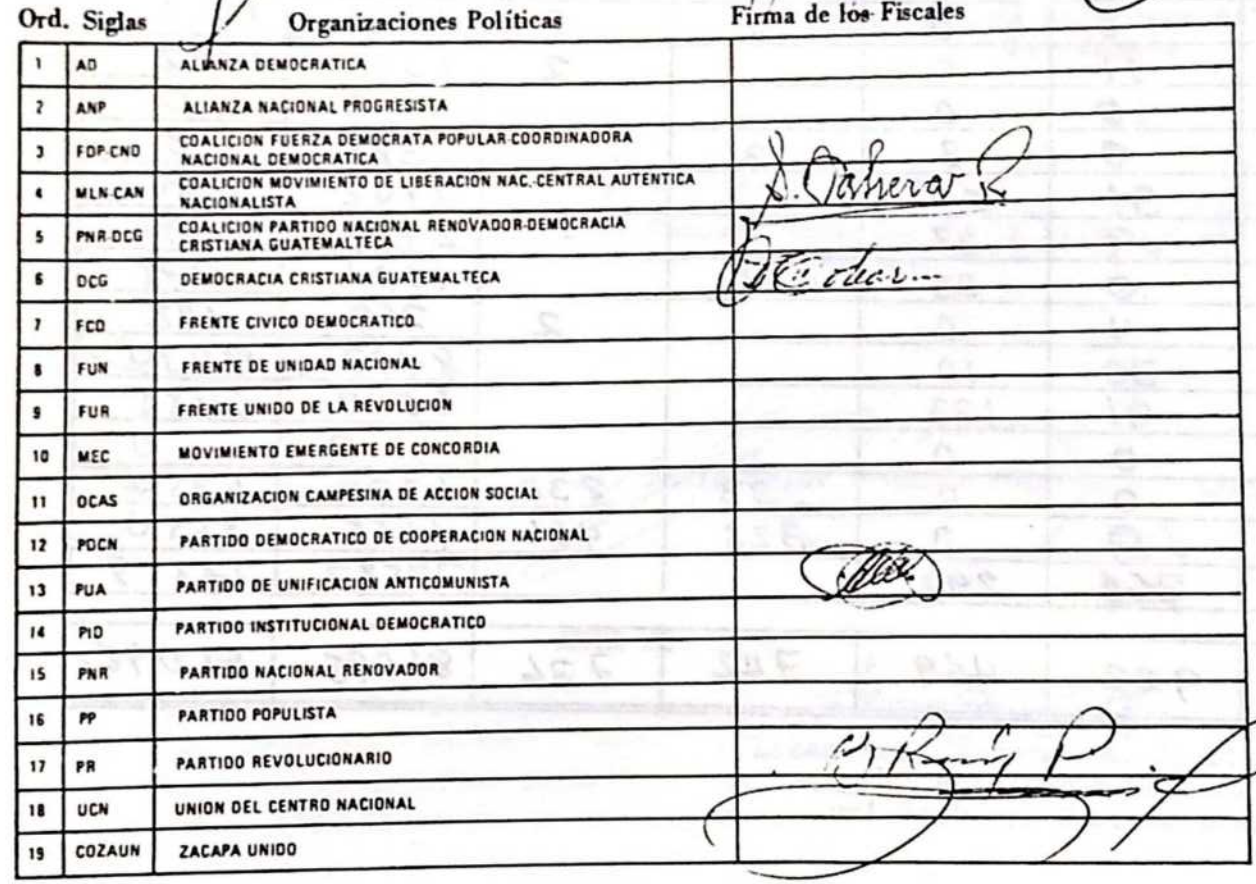 Ord. Siglas Organizaciones Políticas Firma de los Fiscales
1 AD ALIANZA DEMOCRATICA
2 ANP ALIANZA NACIONAL PROGRESISTA
3 FDP-CND COALICION FUERZA DEMOCRATA POPULAR-COORDINADORA
NACIONAL DEMOCRATICA
4 MLN-CAN COALICION MOVIMIENTO DE LIBERACION NAC.-CENTRAL AUTENTICA
NACIONALISTA
5 PNR-DCG COALICION PARTIDO NACIONAL RENOVADOR-DEMOCRACIA
CRISTIANA GUATEMALTECA
6 DCG DEMOCRACIA CRISTIANA GUATEMALTECA
7 FCD FRENTE CIVICO DEMOCRATICO
8 FUN FRENTE DE UNIDAD NACIONAL
9 FUR FRENTE UNIDO DE LA REVOLUCION
10 MEC MOVIMIENTO EMERGENTE DE CONCORDIA
11 OCAS ORGANIZACION CAMPESINA DE ACCION SOCIAL
12 PDCN PARTIDO DEMOCRATICO DE COOPERACION NACIONAL
13 PUA PARTIDO DE UNIFICACION ANTICOMUNISTA
14 PID PARTIDO INSTITUCIONAL DEMOCRATICO
15 PNR PARTIDO NACIONAL RENOVADOR
16 PP PARTIDO POPULISTA
17 PR PARTIDO REVOLUCIONARIO
18 UCN UNION DEL CENTRO NACIONAL
19 COZAUN ZACAPA UNIDO